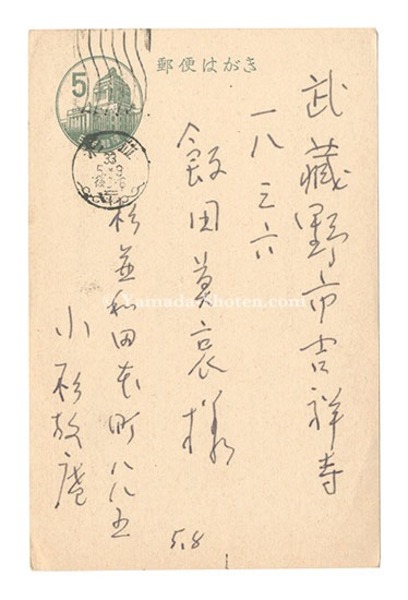 郵便はがき
5
33
5.9
武藏野市吉祥寺
一八三六
飯田莫哀様
杉並和田本町八八五
小杉放庵
5.8
© Yamada-Shoten.com